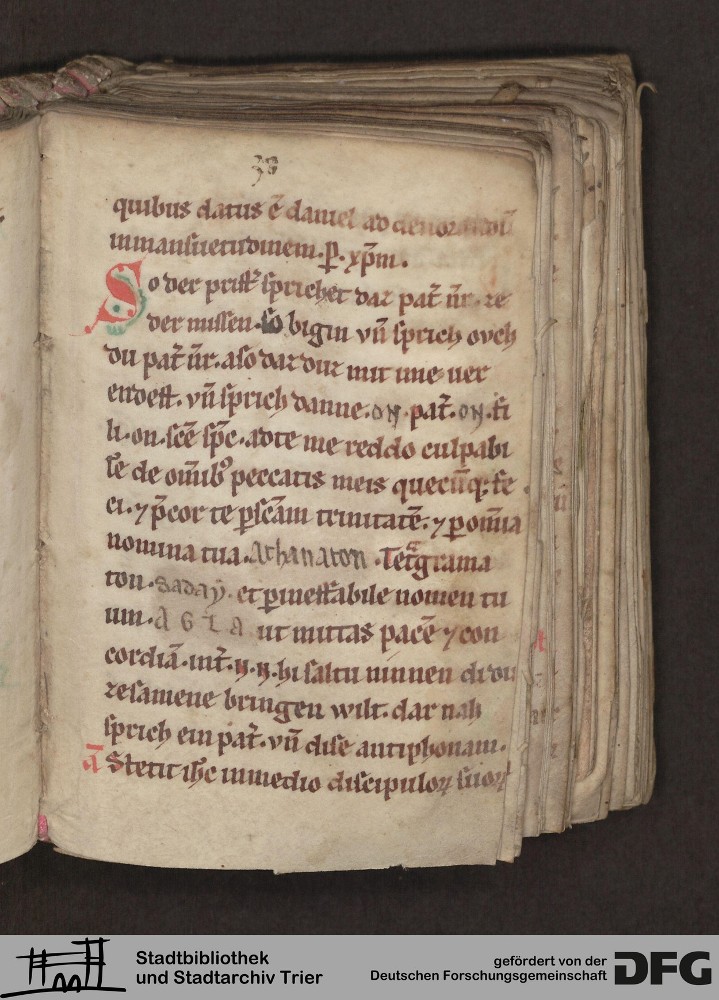 38
quibus datus ē daniel ad deuorandū
inmansuetudinem. p̄. xp̄m.
So der priſt̄ ſprichet daz pat̄ nr̄. ze
der miſſen. ſo bigin vn̄ ſprich ovch
du pat̄ nr̄. aſo daz duz mit ime ver
endeſt. vn̄ ſprich danne. on. pat̄. on. fi
li. on. ſcē ſpc̄. adte me reddo culpabi
lē de om̄ib᷒ peccatis meis quecūq; fe
ci. ⁊ p̄cor te p ſcām trinitatē. ⁊ p om̄ia
nomina tua. Athanaton. Tetᵃgrama
ton. Saday. et p ineffabile nomen tu
um. A G L A ut mittas pacē ⁊ con
cordiā. int̄. N. N. hi ſaltu ninnen di du
zeſamene bringen wilt. dar nah
ſprich ein pat̄. vn̄ diſe antiphonam.
ā Stetit ih̄c inmedio diſcipuloꝝ ſuoꝝ
Stadtbibliothek
und Stadtarchiv Trier
gefördert von der
Deutschen Forschungsgemeinschaft
DFG